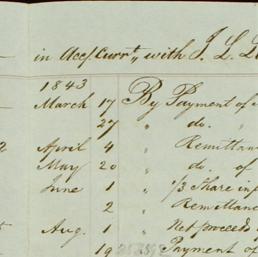 in Acct. Currt., with J. L.
1843
March 17 By Payment of
27 " do.
April 4 " Remittan
May 20 " do. of
June 1 " 1/3 Share in
2 " Remittanc
Aug. 1 " Net proceeds
19 Payment of